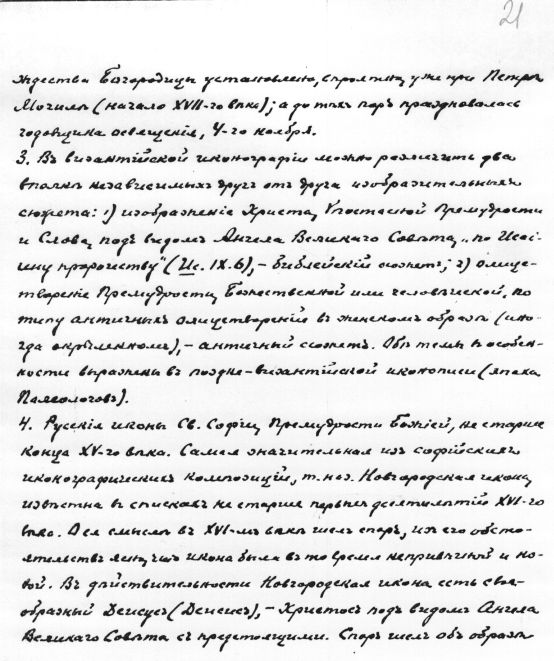 21
ждества Богородицы установлено, впрочемъ, уже при Петрѣ
Могилѣ (начало XVII-го вѣка); а до тѣхъ поръ праздновалась
годовщина освященія, 4-го ноября.
3. Въ византійской иконографіи можно различить два
вполнѣ независимыхъ другъ отъ друга изобразительныхъ
сюжета: 1) изображеніе Христа, Ѵпостасной Премудрости
и Слова, подъ видомъ Ангела Великаго Совѣта, „по Исаі-
ину пророчеству" (Ис. IX.6), – библейскій сюжетъ; 2) олице-
твореніе Премудрости, Божественной или человѣческой, по
типу античныхъ олицетвореній въ женскомъ образѣ (ино-
гда окрыленномъ), – античный сюжетъ. Обѣ темы въ особен-
ности выражены въ поздне-византійской иконописи (эпоха
Палеологовъ).
4. Русскія иконы Св. Софіи, Премудрости Божіей, не старше
конца XV-го вѣка. Самая значительная изъ софійскихъ
иконографическихъ композицій, т. наз. Новгородская икона,
извѣстна въ спискахъ не старше первыхъ десятилѣтій XVI-го
вѣка. О ея смыслѣ въ XVI-мъ вѣкѣ шелъ споръ, изъ его обсто-
ятельствъ ясно, что икона была въ то время непривычной и но-
вой. Въ дѣйствительности Новгородская икона есть свое-
образный Деисусъ (Деисис), – Христосъ подъ видомъ Ангела
Великаго Совѣта съ предстоящими. Споръ шелъ объ образѣ